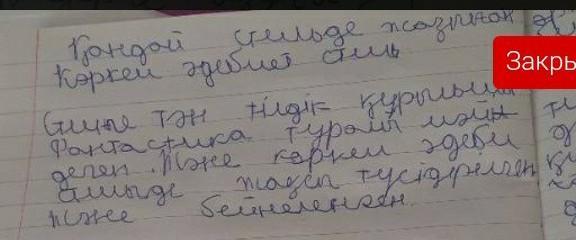 Қандай стильде жазылған
Көркем әдебиет стилі
Закры
Стиліне тән тілдік құрылым
Фантастика туралы мәтін
деген. Және көркем әдеби
стильде жақсы түсідірілген
және бейнеленген.